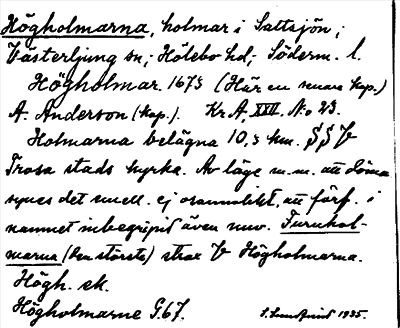 Högholmarna, holmar i Saltsjön,
Västerljung sn; Hölebo hd; Söderm. l.
Högholmar 1673 (Här en senare kop.)
A. Anderson (kop.). Kr A, XVII, No 23.
Holmarna belägna 10,3 km. SSV
Trosa stads kyrka. Av läge m.m. att döma
synes det emell. ej osannolikt, att förf. i
namnet inbegripit även nuv. Furuhol-
marna (den största) strax V Högholmarna.
Högh. ek.
Högholmarne G.67.
S. Lundquist 1935.